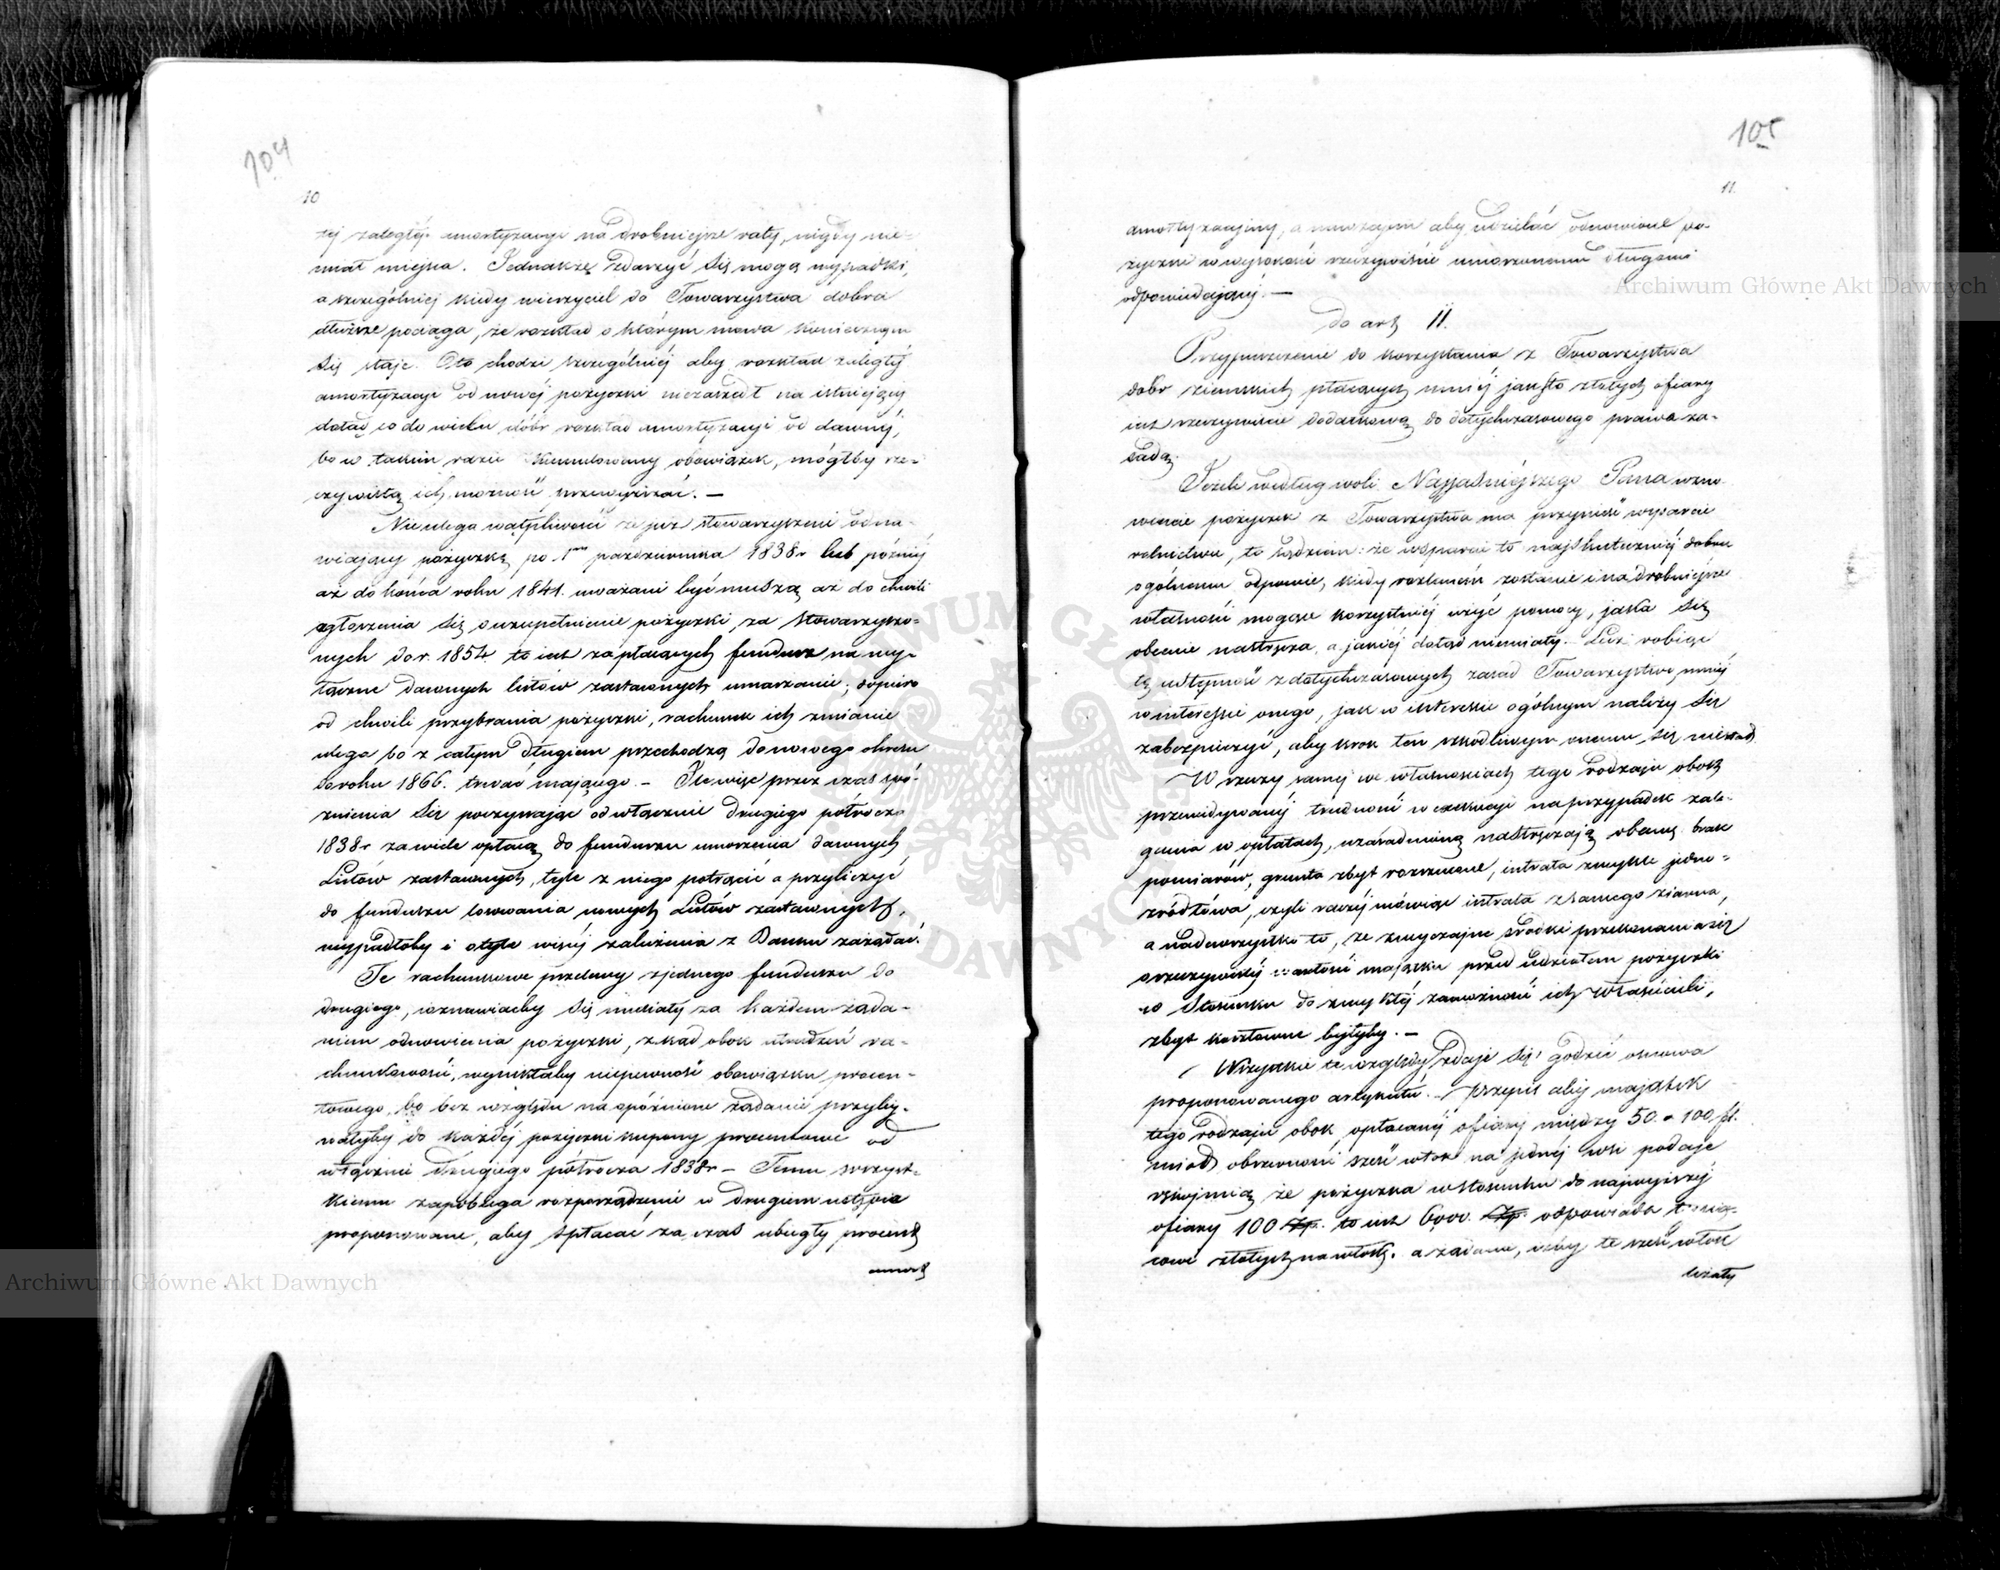 104
10
tej zaległej amortyzacyi na drobniejsze raty, nigdy nie-
miał miejsca. Jednakże zdarzyć się mogą wypadki,
a szczególniej kiedy wierzyciel do Towarzystwa dobra
dłuższe pociąga, że rozkład o którym mowa koniecznym
się staje. Oto chodzi szczególniej aby rozkład zaległej
amortyzacyi od nowej pożyczki niezaszedł na istniejący
dotąd co do wielu dóbr rozkład amortyzacyi od dawnej,
bo w takim razie kumulowany obowiązek, mógłby rze-
czywistą ich możność przewyższać. —
Nie ulega wątpliwości że już stowarzyszeni odna-
wiający pożyczkę po 1m października 1838r lub później
aż do końca roku 1841. uważani być muszą aż do chwili
zgłoszenia się o uzupełnienie pożyczki, za stowarzyszo-
nych do r. 1854 to iest za płacących fundusz na wy-
łączne dawnych listów zastawnych umarzanie; dopiero
od chwili przybrania pożyczki, rachunek ich zmianie
ulega bo z całym długiem przechodzą do nowego okresu
do roku 1866. trwać mającego. — Ile więc przez czas spó-
znienia się poczynając od włącznie drugiego półrocza
1838r za wiele opłacą do funduszu umorzenia dawnych
Listów zastawnych, tyle z niego potrącić a przyliczyć
do funduszu losowania nowych Listów zastawnych,
wypadłoby i otyle więcej zaliczenia z Banku zażądać.
Te rachunkowe przelewy z jednego funduszu do
drugiego, wznawiaćby się musiały za każdem żąda-
niem odnowienia pożyczki, zkąd obok utrudzeń ra-
chunkowości, wynikłaby niepewność obowiązku procen-
towego, bo bez względu na opóźnione żądanie przyby-
wałyby do każdej pożyczki kupony procentowe od
włącznie drugiego półrocza 1838r — Temu wszyst-
kiemu zapobiega rozporządzenie w drugim ustępie
proponowane, aby spłacać za czas ubiegły procent
amort
105
11.
amortyzacyjny, a umarzam aby udzielać odnowione po-
życzki w wysokości rzeczywiście umorzonemu długowi
odpowiadającej. —
do art 11.
Przypuszczenie do korzystania z Towarzystwa
dóbr ziemskich płacących mniej jak sto złotych ofiary
iest rzeczywiście dodatkową do dotychczasowego prawa za-
sadą.
Jeżeli według woli Najjaśniejszego Pana wzno
wienie pożyczek z Towarzystwa ma przynieść wsparcie
rolnictwu, to sądzim: że wsparcie to najskuteczniej dobru
ogólnemu odpowie, kiedy rozłożone zostanie i na drobniejsze
własności mogące korzystniej użyć pomocy, jaka się
obecnie nastręcza, a jakiej dotąd niemiały. Lecz robiąc
tę ustępność z dotychczasowych zasad Towarzystwa, mniej
w interessie onego, jak w interessie ogólnym należy się
zabezpieczyć, aby krok ten szkodliwym onemu się niestał.
W rzeczy samej we własnościach tego rodzaju obok
przewidywanej trudności w exekucyi na przypadek zale-
gania w opłatach, uzasadnioną nastręczają obawę brak
pomiarów, grunta zbyt rozrzucone, intrata zwykle jedno-
źródłowa, czyli raczej mówiąc intrata z samego ziarna,
a nadewszystko to, że zwyczajne środki przekonania się
o rzeczywistej wartości majątku przed udziałem pożyczki
w stosunku do zwykłej zamożności ich właścicieli,
zbyt kosztowne byłyby. —
Wszystkie te względy zdaje się godzić osnowa
proponowanego artykułu. — Przepis aby majątek
tego rodzaju obok opłacanej ofiary między 50. a 100 fl.
miał obszerności sześć włók na jednej wsi podaje
rękojmią że pożyczka w stosunku do najwyższej
ofiary 100 Zp. to iest 6,000. Zp. odpowiada tysią-
cowi złotych na włókę. a żądanie, żeby te sześć włók
leżały